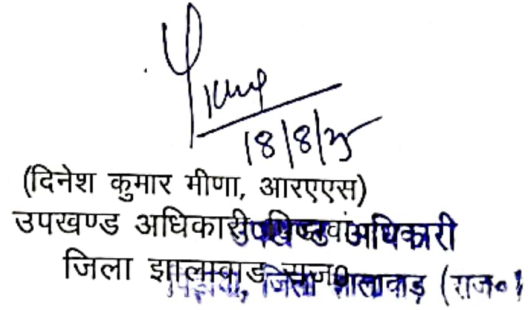 18/8/25
(दिनेश कुमार मीणा, आरएएस)
उपखण्ड अधिकारी
उपखण्ड अधिकारी
जिला झालावाड़ राज०
जिला झालावाड़ (राज०)